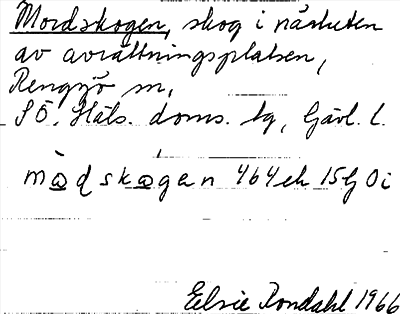 Mordskogen, skog i närheten
av avrättningsplatsen,
Rengsjö sn,
SÖ. Häls. doms. tg, Gävl. L.
mɷ̀dskɷgan 464eh 15G0i
Elsie Rondahl 1966